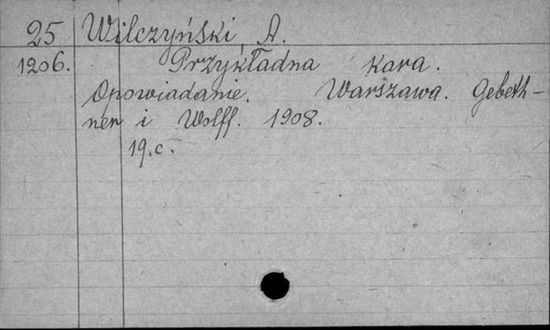 25 Wilczyński, A.
1206. Przykładna kara.
Opowiadanie. Warszawa. Gebeth-
ner i Wolff. 1908.
19.c.